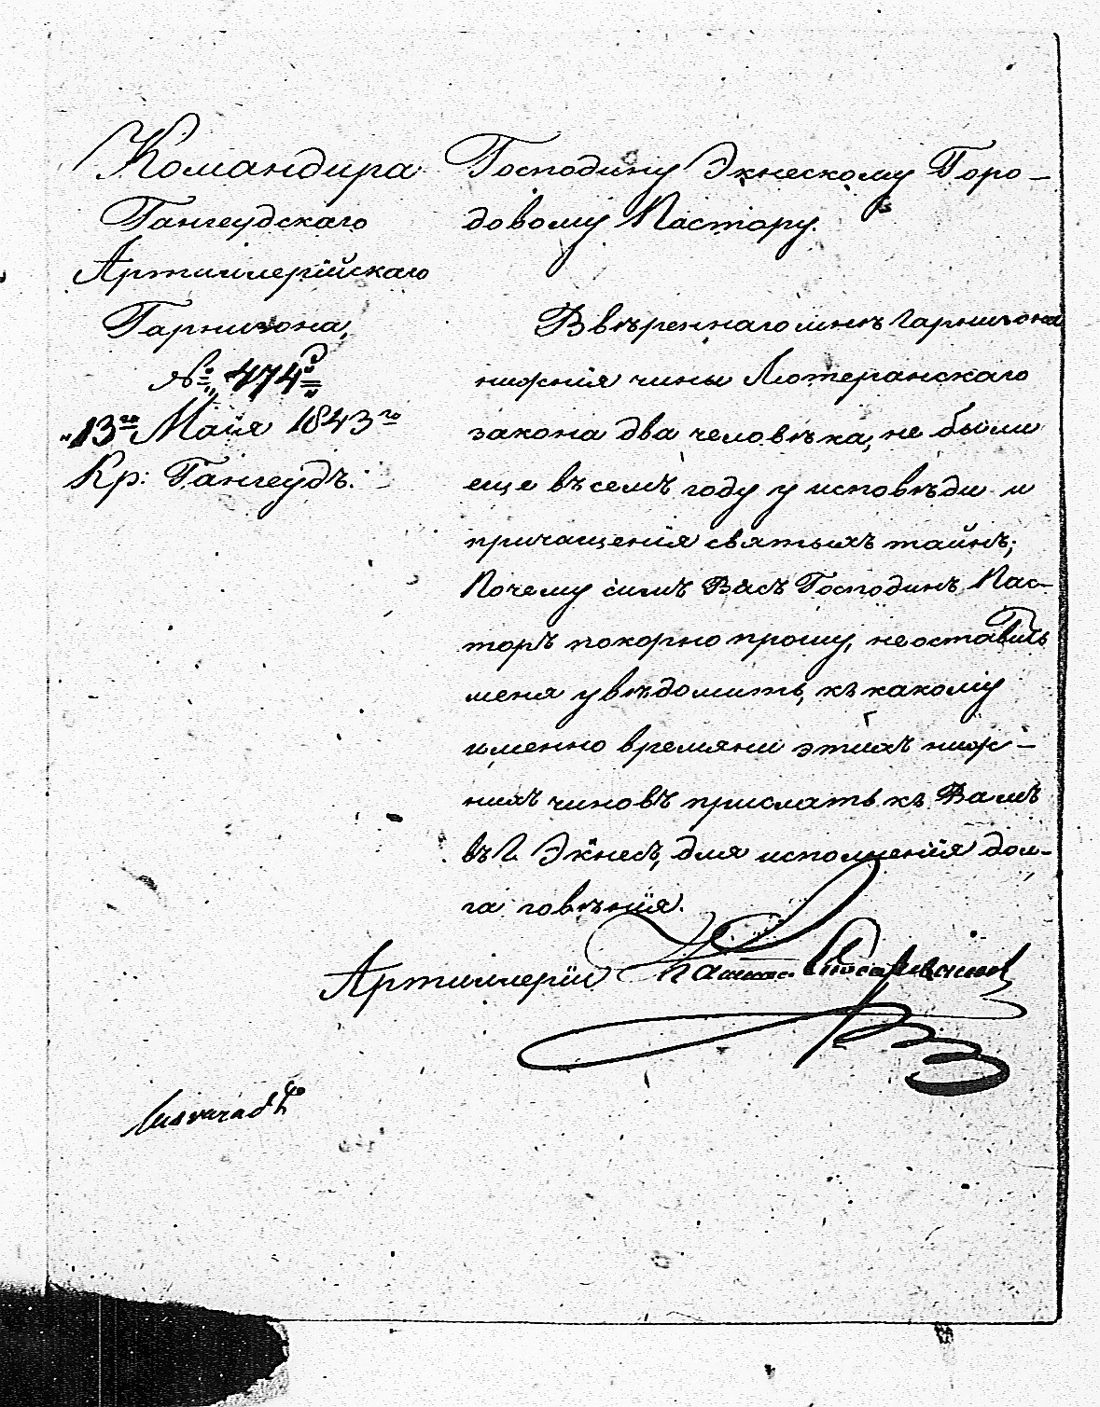 Командира
Гангеудскаго
Артиллерійскаго
Гарнизона,
№ 474
"13го Майя 1843го
Кр: Гангеудъ.
Господину Экнескому Горо-
довому Пастору.
Ввѣреннаго мнѣ Гарнизона
нижнія чины Лютеранскаго
закона два человѣка, не были
еще въ семъ году у исповѣди и
причащенія святыхъ тайнъ;
Почему симъ Васъ Господинъ Пас-
торъ покорно прошу, не оставить
меня увѣдомить, къ какому
именно времяни этихъ ниж-
нихъ чиновъ прислать къ Вамъ
въ г. Экнесъ, для исполненія дол-
га говѣнія.
Артиллеріи